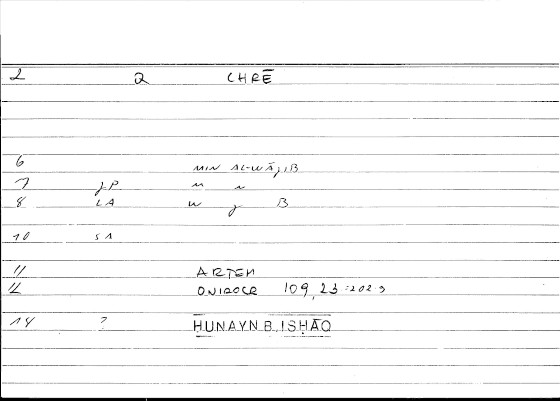 2 2 CHRĒ
6 MIN AL-WĀǧIB
7 GP M N
8 LA W ǧ B
10 SA
11 ARTEM
12 ONIROCR 109,23 =202.9
14 ? ḤUNAYN B. ISḤĀQ